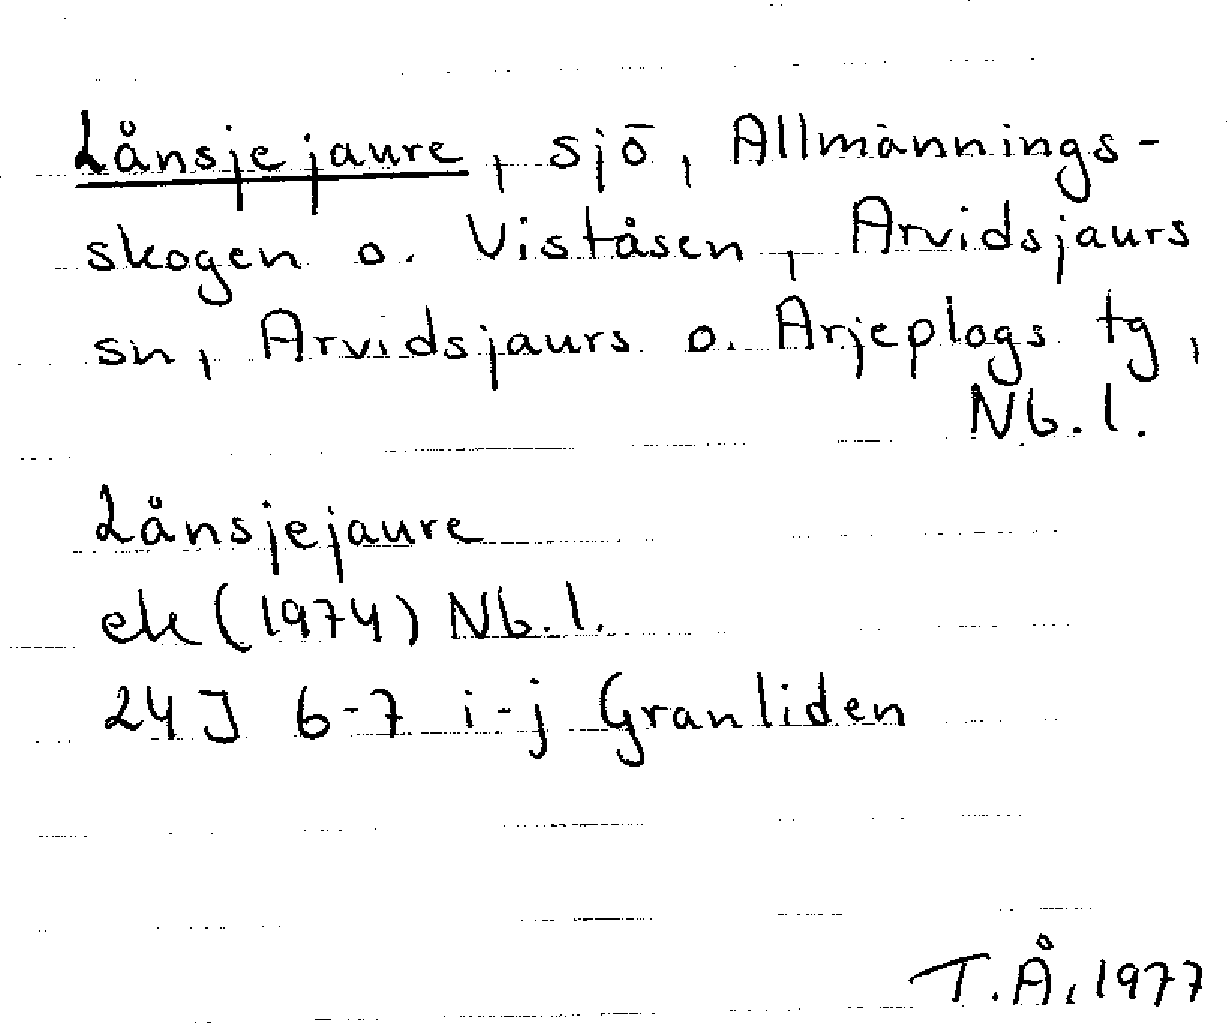 Lånsjejaure, sjö, Allmännings-
skogen o. Viståsen, Arvidsjaurs
sn, Arvidsjaurs o. Arjeplogs tg,
Nb. l.
Lånsjejaure
ek (1974) Nb. l.
24J 6-7 i-j Granliden
T. Å, 1977